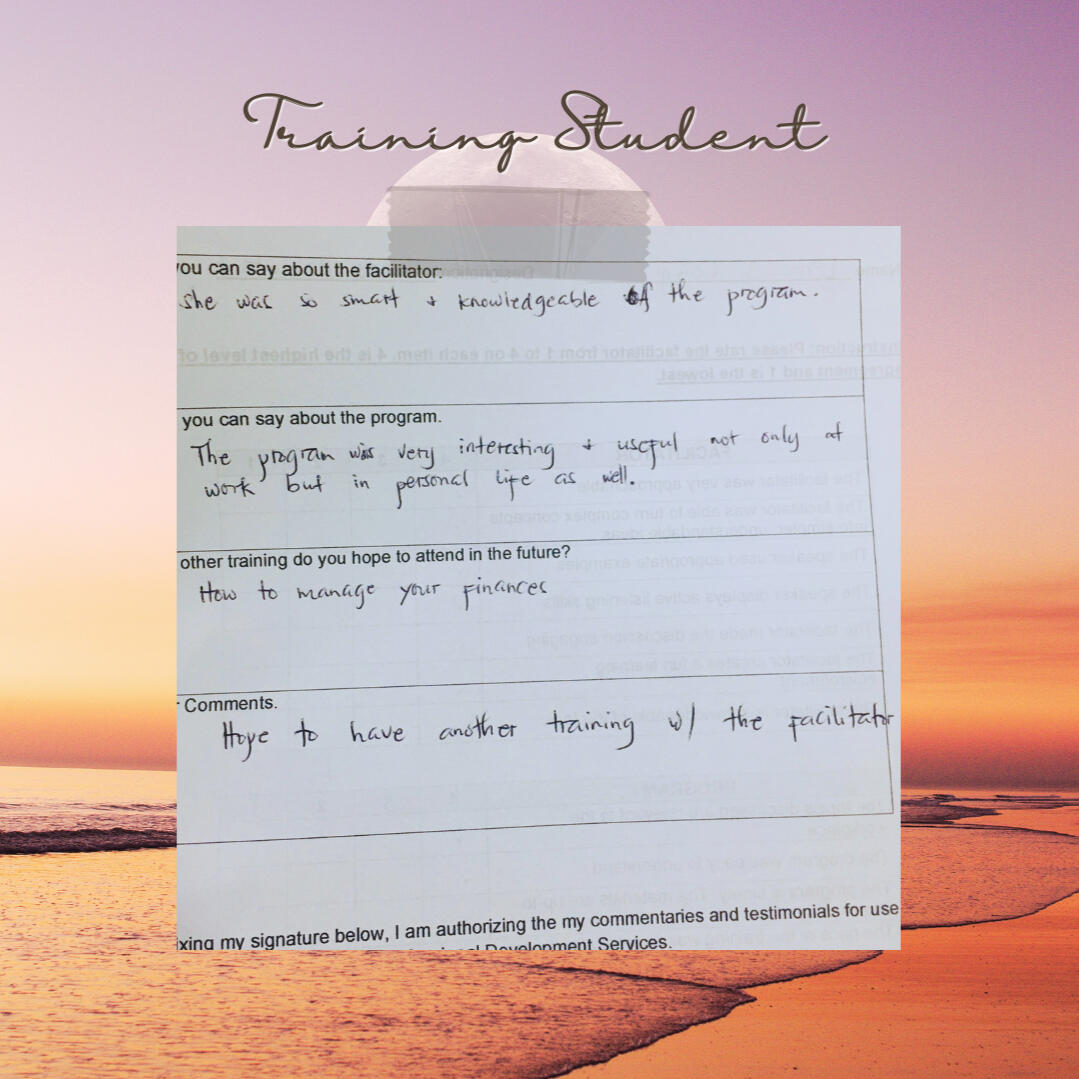 Training Student
you can say about the facilitator:
she was so smart + knowledgeable of the program.
you can say about the program.
The program was very interesting + useful not only at
work but in personal life as well.
other training do you hope to attend in the future?
How to manage your finances
Comments.
Hope to have another training w/ the facilitator
xing my signature below, I am authorizing the my commentaries and testimonials for use
Development Services.